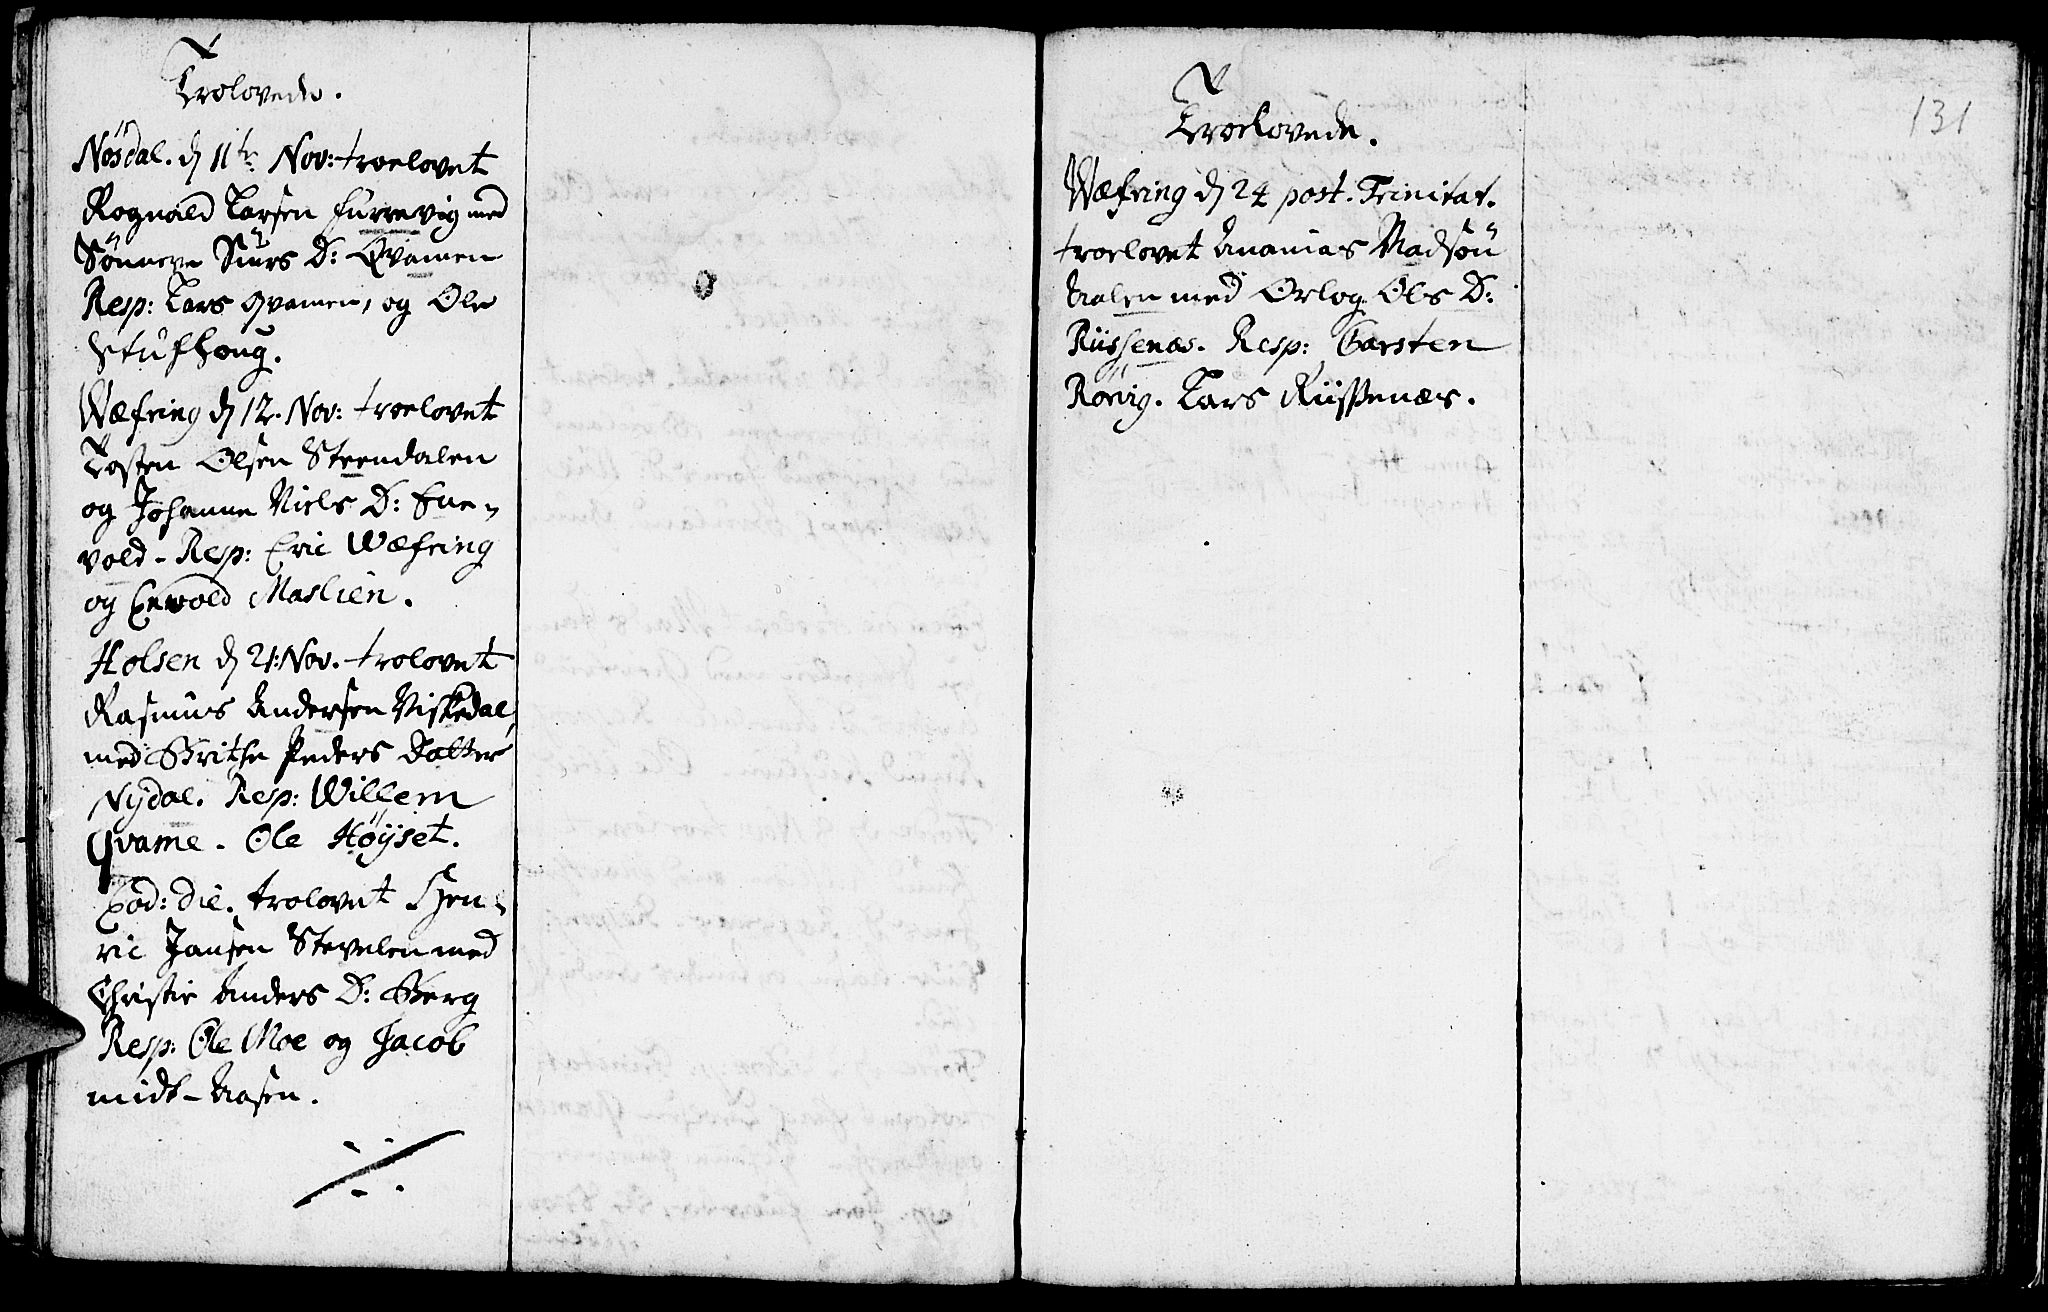 Trolovede.
Nösdal. d 11te Nov: troelovet
Rognald Larsen Furrevig med
Sönneve Siurs D: Qvamen
Resp: Lars Qvamen, og Ole
Stufhoug.
Wæfring d 12. Nov: troelovet
Tosten Olsen Steendalen
og Johanne Niels D: Ene-
vold - Resp: Eric Wæfring
og Enwold Maslien.
Holsen d 21: Nov. trolovet
Rasmus Andersen Viskedal,
med Brithe Peders Datter
Nÿdal. Resp: Willem
Qvame. Ole Höÿset.
Eod: die. trolovet Hen-
ric Jansen Stevelen med
Christie Anders D: Berg
Resp: Ole Moe og Jacob
midt-Aasen.
Troelovede.
131
Wæfring d 24 post. Trinitat.
troelovet Ananias Madsön
Aalen med Orlog Ols D:
Riissenæs. Resp: Carsten
Rörvig. Lars Riissenæs.